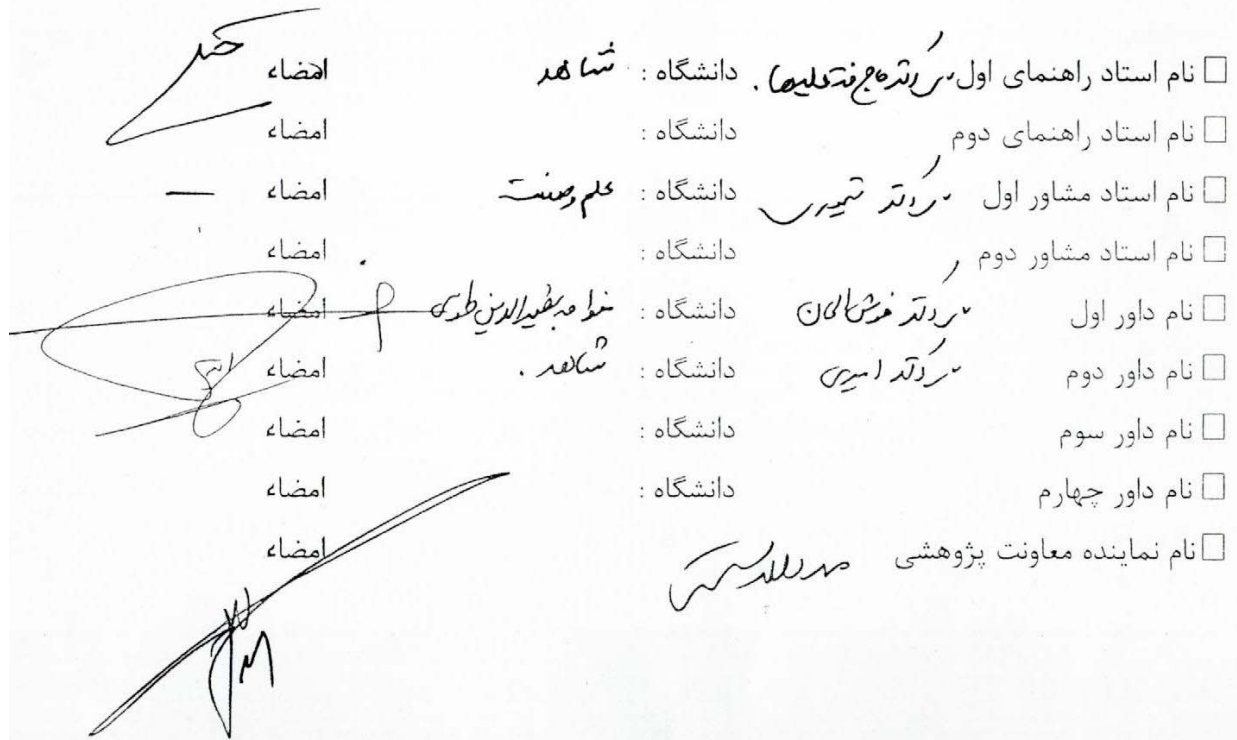 نام استاد راهنمای اول دانشگاه : شاهد امضاء
نام استاد راهنمای دوم دانشگاه : امضاء
نام استاد مشاور اول دکتر تیموری دانشگاه : علم و صنعت امضاء —
نام استاد مشاور دوم دانشگاه : امضاء
نام داور اول دکتر دانشگاه : خواجه نصیرالدین طوسی امضاء
نام داور دوم دکتر امیری دانشگاه : شاهد . امضاء
نام داور سوم دانشگاه : امضاء
نام داور چهارم دانشگاه : امضاء
نام نماینده معاونت پژوهشی امضاء